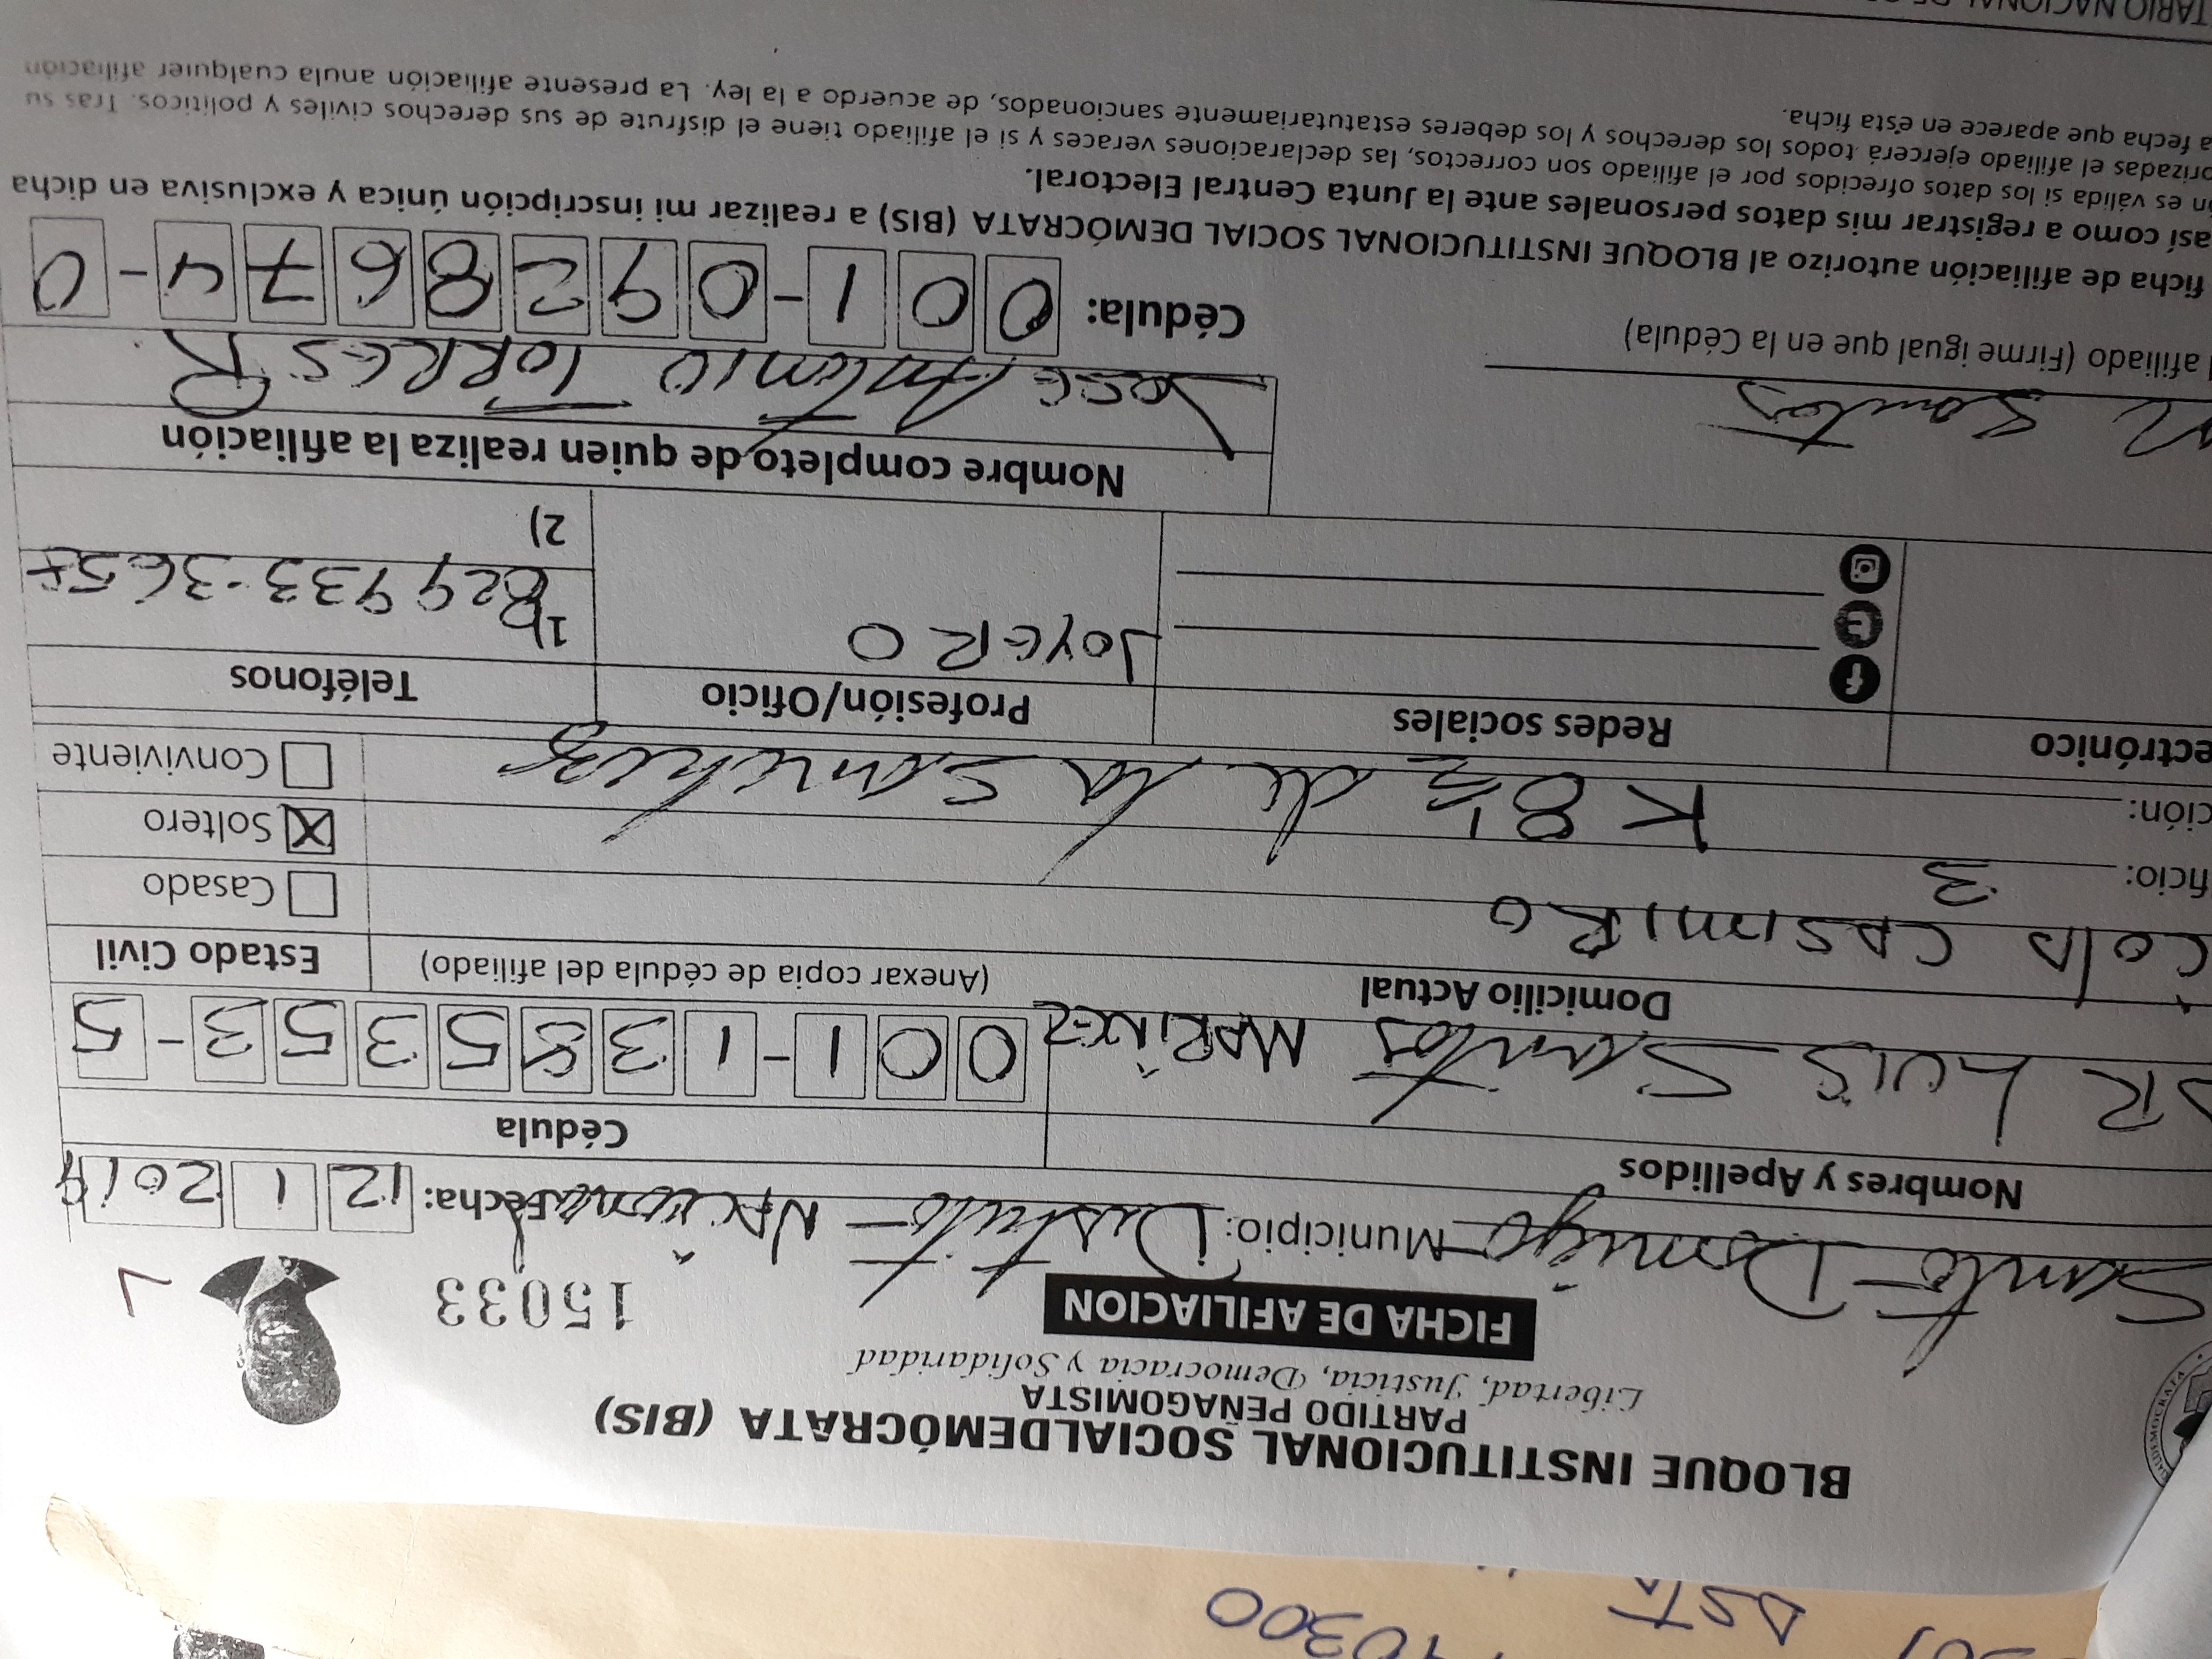 BLOQUE INSTITUCIONAL SOCIALDEMÓCRATA (BIS)
PARTIDO PEÑAGOMISTA
Libertad, Justicia, Democracia y Solidaridad
FICHA DE AFILIACION
15033
Santo Domingo Municipio: Distrito Nacional Fecha: 12 1 2019
Nombres y Apellidos Cédula
JR LUIS Santos MARÍNEZ 001-1385353-5
Domicilio Actual (Anexar copia de cédula del afiliado) Estado Civil
COLA CASIMIRO Casado
ficio: 3 X Soltero
ción: K 8 1/2 de la Sanchez Conviviente
ectrónico Redes sociales Profesión/Oficio Teléfonos
JOYERO 1) 829 933-365
2)
Nombre completo de quien realiza la afiliación
Santos JOSE Antonio TORRES R
afiliado (Firme igual que en la Cédula) Cédula: 001-0928674-0
ficha de afiliación autorizo al BLOQUE INSTITUCIONAL SOCIAL DEMÓCRATA (BIS) a realizar mi inscripción única y exclusiva en dicha
así como a registrar mis datos personales ante la Junta Central Electoral.
n es válida si los datos ofrecidos por el afiliado son correctos, las declaraciones veraces y si el afiliado tiene el disfrute de sus derechos civiles y políticos. Tras su
orizadas el afiliado ejercerá todos los derechos y los deberes estatutariamente sancionados, de acuerdo a la ley. La presente afiliación anula cualquier afiliación
a fecha que aparece en ésta ficha.